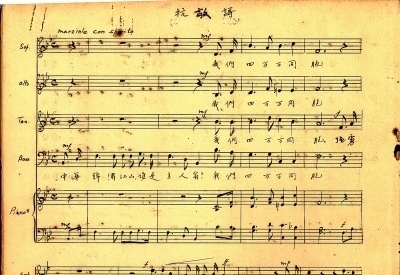 抗敵謌
marziale con spirito
Sop.
mf
我們四万万同胞
Alto
mf
我們四万万同胞
Ten.
mf
我們四万万同胞 強虜
Bass
mf
中華錦繡江山誰是主人翁？我們四万万同胞
Piano
mf
mf